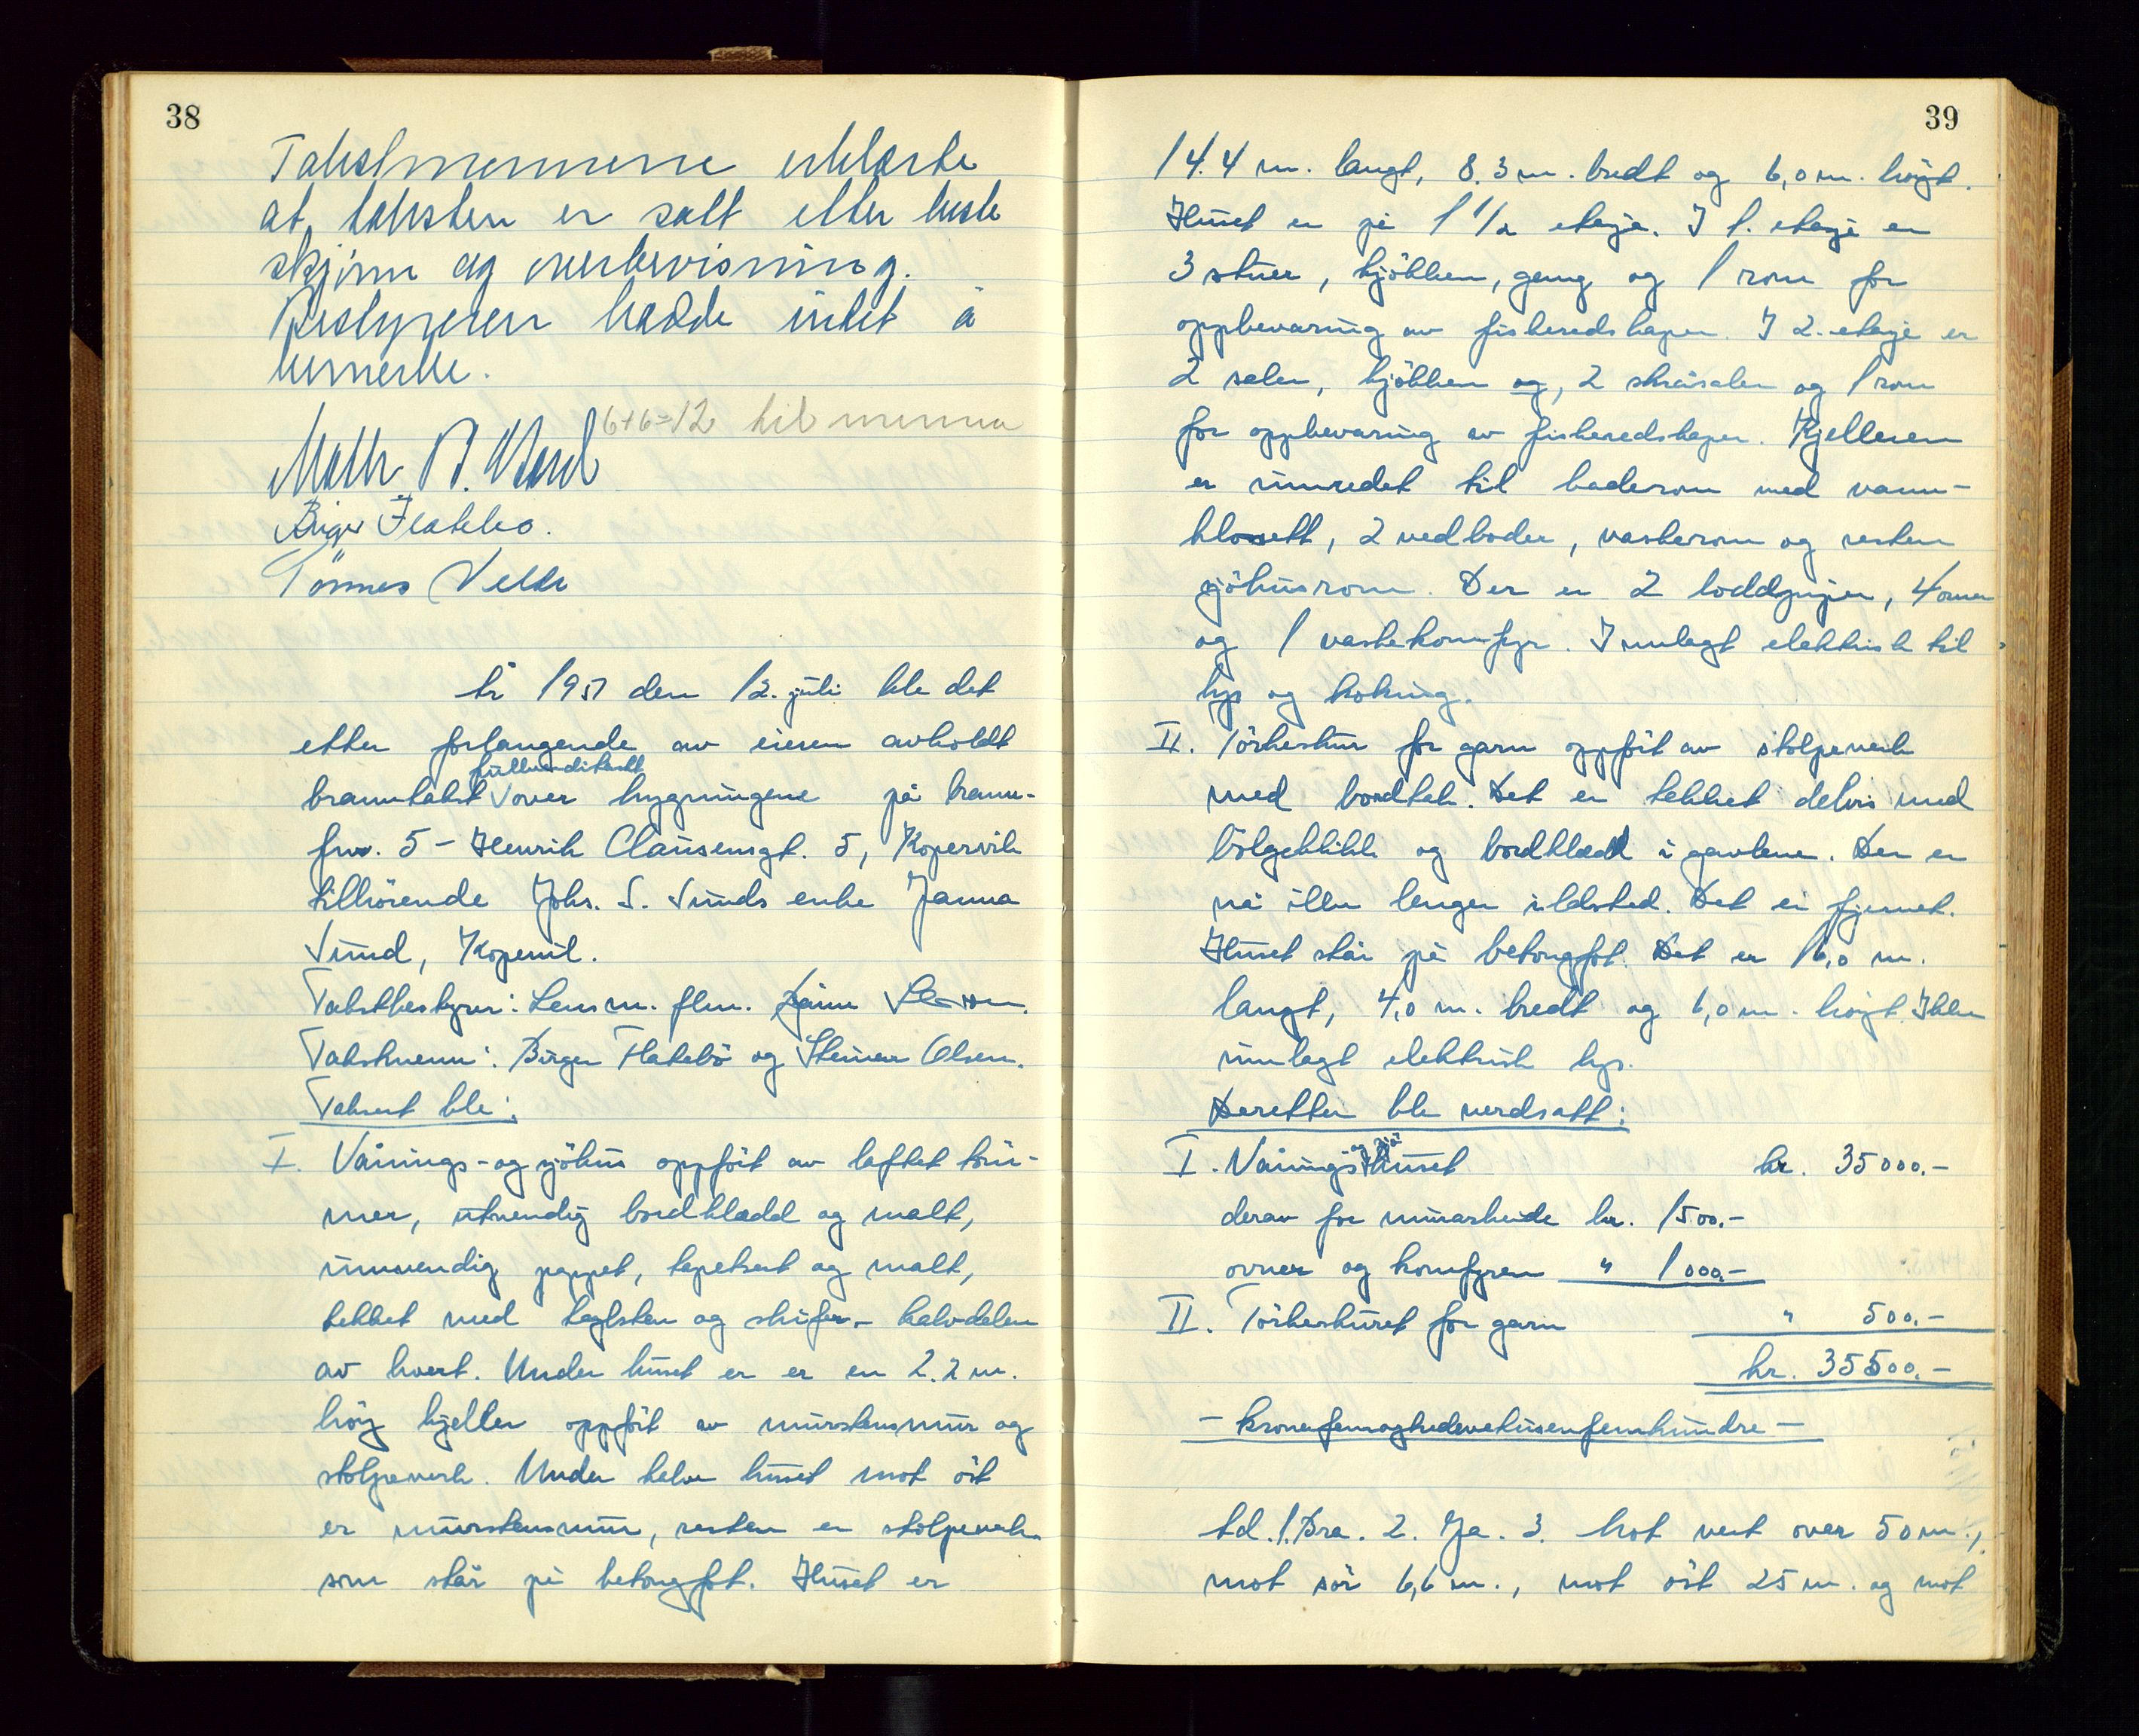 38
Takstmennene erklærte
at taksten er satt etter beste
skjönn og overbevisning.
Bestyreren hadde intet å
bemerke.
6+6=12 til minne
Birger Flatebö.
Tönnes Velde
År 1951 den 12. juli ble det
etter forlangende av eieren avholdt
branntakst fullverditakst over bygningene på brann-
frw. 5 - Henrik Clausensgt. 5, Kopervik
tilhörende Johs. S. Sunds enke Janna
Sund, Kopervik.
Takstbestyrer: Lensm. flm.
Takstmenn: Birger Flatebö og Steinar Olsen.
Taksert ble:
I. Vånings- og sjöhus oppfört av laftet töm-
mer, utvendig bordkledd og malt,
innvendig pappet, tapetsert og malt,
tekket med taglsten og skifer - halvdelen
av hvert. Under huset er er en 2.2 m.
höy kjeller oppfört av murstensmur og
stolpeverk. Under halve huset mot öst
er murstensmur, resten er stolpeverk
som står på betongfot. Huset er
39
14.4 m. langt, 8.3 m. bredt og 6,0 m. höyt.
Huset er på 1 1/2 etasje. I 1. etasje er
3 stuer, kjökken, gang og 1 rom for
oppbevaring av fiskeredskaper. I 2. etasje er
2 saler, kjökken og, 2 skråsaler og 1 rom
for oppbevaring av fiskeredskaper. Kjelleren
er innredet til baderom med vann-
klosett, 2 vedboder, vaskerom og resten
sjöhusrom. Der er 2 loddpiper, 4 ovner
og 1 vaskekomfyr. Innlagt elektrisk til
lys og koking.
II. Törkeskur for garn oppfört av stolpeverk
med bordtak. Det er tekket delvis med
bölgeblikk og bordkledd i gavlene. Der er
nå ikke lenger ildsted. Det er fjernet.
Huset står på betongfot. Det er 16,0 m.
langt, 4,0 m. bredt og 6,0 m. höyt. Ikke
innlagt elektrisk lys.
Deretter ble verdsatt:
I. Vånings og sjö huset kr. 35000.-
derav for murarbeide kr. 1500.-
ovner og komfyren " 1000.-
II. Törkeskuret for garn " 500.-
kr. 35500.-
- kronerfemogtredevetusenfemhundre -
td. 1. Bra. 2. Ja. 3. Mot vest over 50 m.,
mot sör 6,6 m., mot öst 25 m. og mot